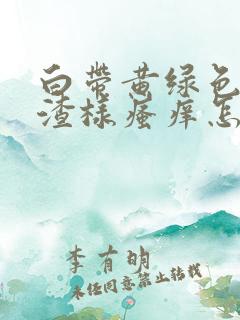 白带黄绿色
渣样瘙痒怎
李有明
未经同意禁止转载